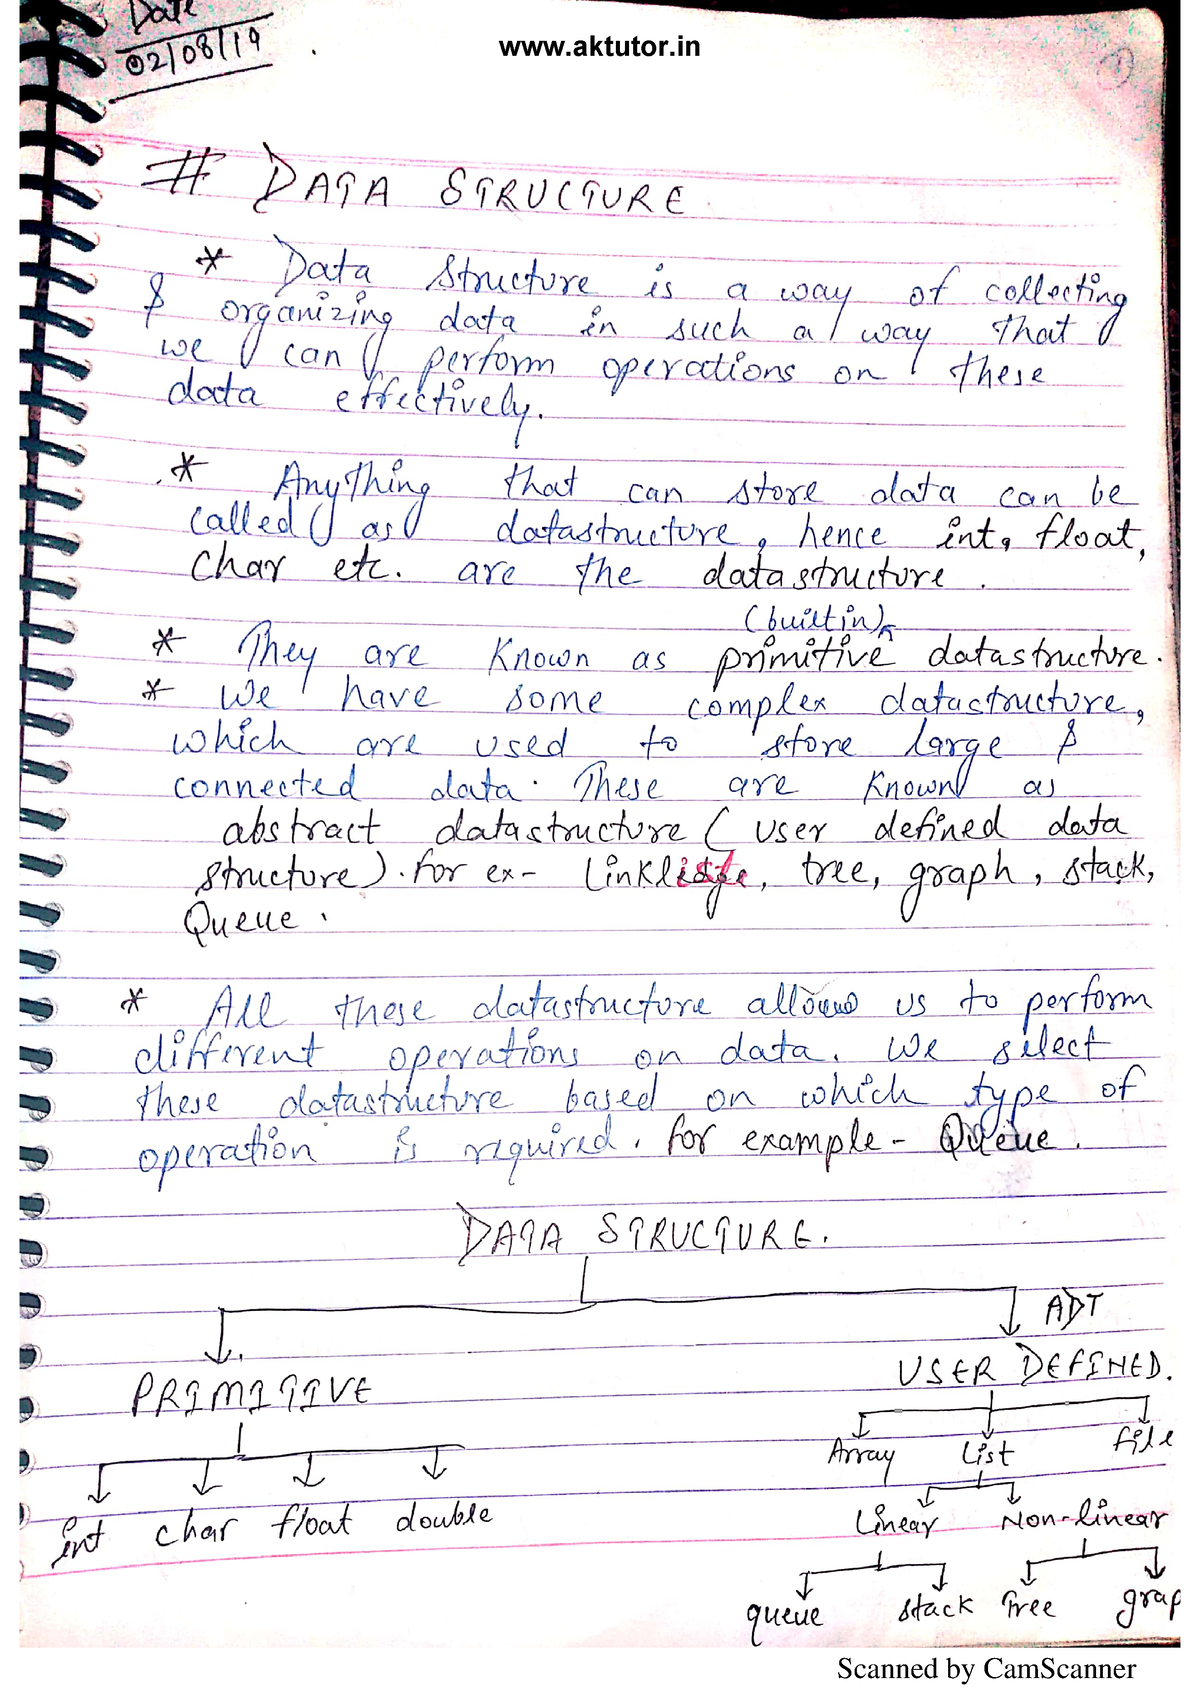 Date
02/08/19
www.aktutor.in
1
# DATA STRUCTURE
* Data structure is a way of collecting
& organizing data in such a way that
we can perform operations on these
data effectively.
* Anything that can store data can be
called as datastructure, hence int, float,
char etc. are the datastructure.
(builtin)
* They are known as primitive datastructure.
* We have some complex datastructure,
which are used to store large &
connected data. These are known as
abstract datastructure (user defined data
structure). for ex- tree, graph, stack,
Queue.
* All these datastructure allows us to perform
different operations on data. We select
these datastructure based on which type of
operation is required. for example - Queue.
DATA STRUCTURE.
ADT
PRIMITIVE USER DEFINED.
Array List file
int char float double Linear Non-linear
queue stack Tree grap
Scanned by CamScanner